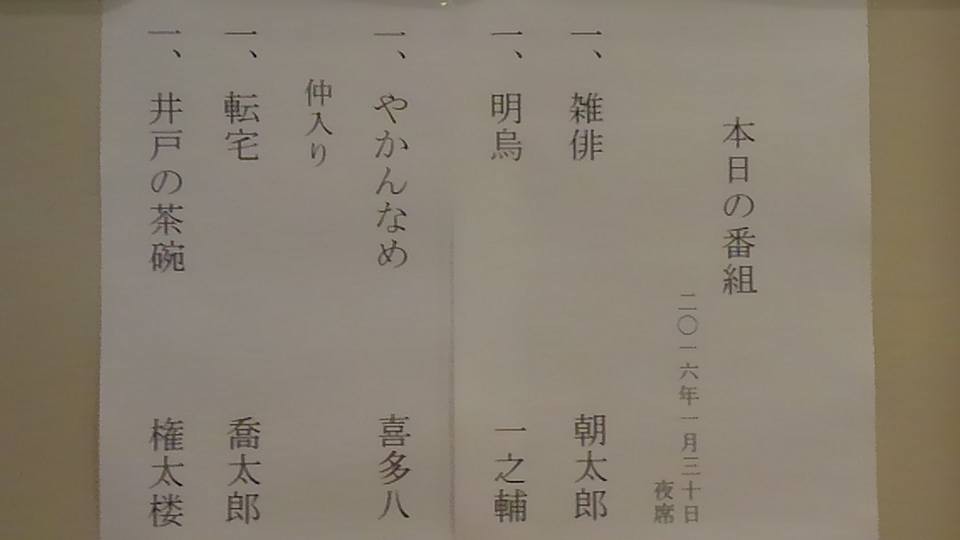 本日の番組
二〇一六年一月三十日
夜席
一、雑俳 朝太郎
一、明烏 一之輔
一、やかんなめ 喜多八
仲入り
一、転宅 喬太郎
一、井戸の茶碗 権太楼